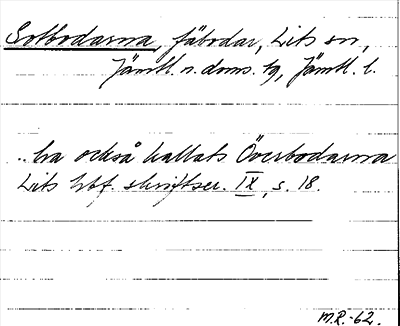 Solbodarna, fäbodar, Lits sn,
Jämtl. n. doms. tg, Jämtl. l.
..ha också kallats Överbodarna
Lits hbf. skriftser. IX, s. 18.
M.R.-62.